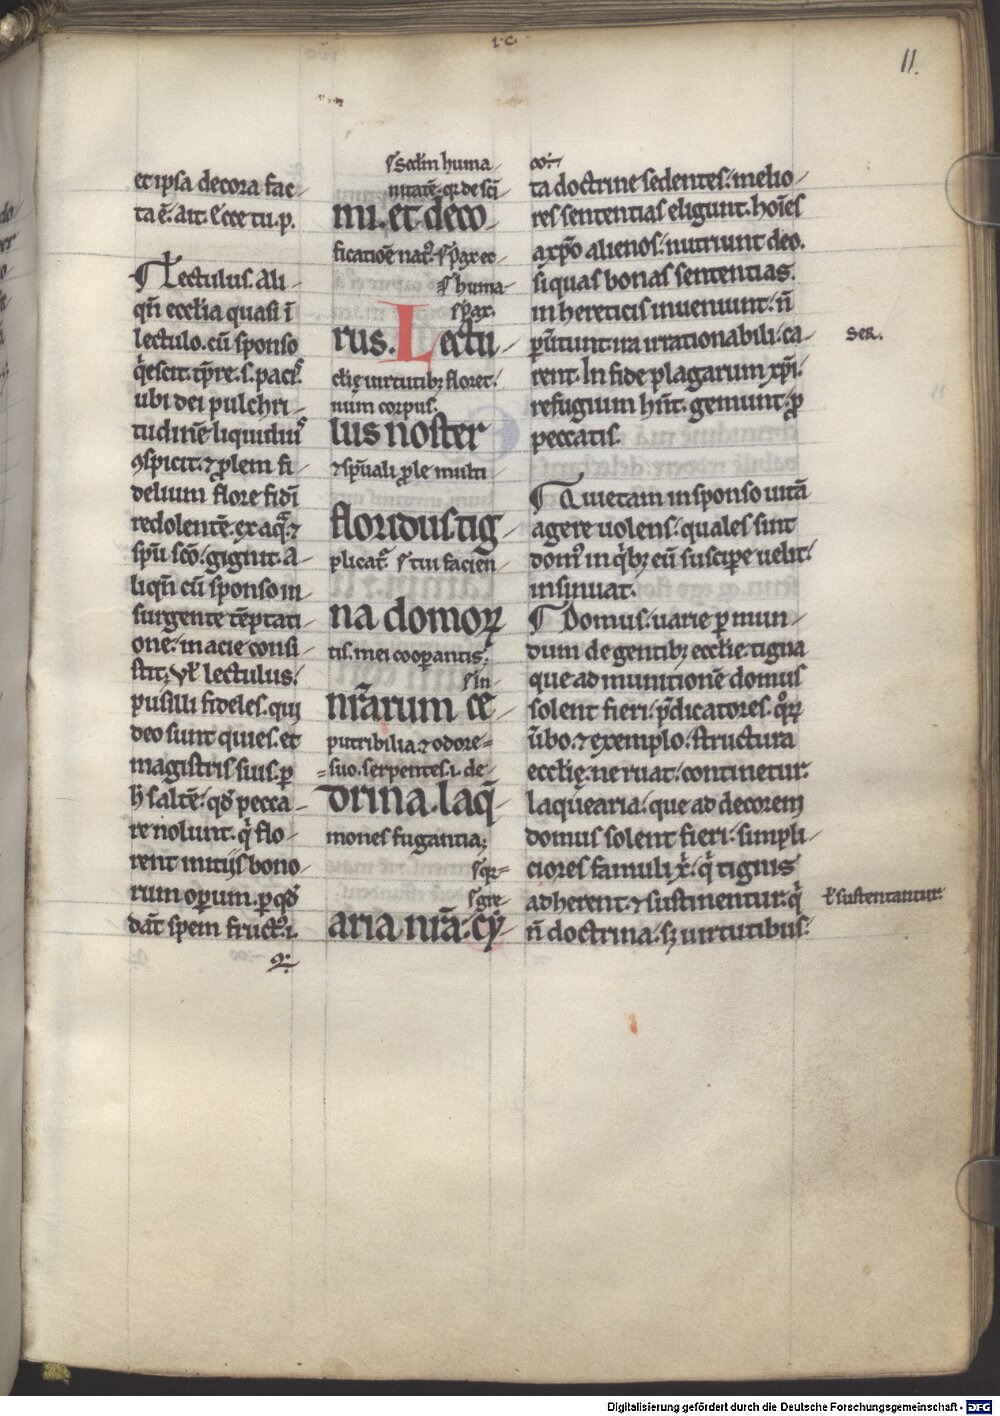 ·1·C·
11.
et ipsa decora fac-
ta ē. Ait. Ecce tu. p.
Lectulus. Ali-
qn̄ eccl̄ia quasi ī
lectulo. cū sponso
q̇escit. tp̄re. s. pacis.
ubi dei pulchri-
tudinē liquidius
ꝯspicit. ⁊ ꝓlem fi-
delium flore fidei
redolentē. ex aq̄. ⁊
sp̄u sc̄o. gignit. A-
liqn̄ cū sponso in-
surgente tēptati-
one. in acie consi-
stit. Vl̄ lectulus.
pusilli fideles. qui
deo sunt quies. et
magistris suis. ꝑ
h̄ saltē. qd̄ pecca-
re nolunt. q̇ flo-
rent initiis bono-
rum oꝑum. ꝑ qd̄
dāt spem fruct9. i.
sed in huma-
nitatē. qr de sci-
ni. et deco-
ficatiōe nat9. spar ec-
huma-
spar.
rus. Lectu-
clię uirtutibꝫ floret.
num corpus.
lus noster
⁊ sp̄uali ꝓle multi-
floridus. tig-
plicat᷑. tui facien-
na domoꝝ
tis. mei cooꝑantis.
in-
nr̄arum ce-
putribilia. ⁊ odore-
suo. serpentes. i. de-
drina. laq̄-
mones fugantia;
qr-
gre-
aria nr̄a. cy-
ta doctrine sedentes. melio-
res sententias eligunt. hoīes
a xp̄o alienos. nutriunt deo.
si quas bonas sententias.
in hereticis inueniunt. n̄
ꝑ̄mittunt ita irrationabili. ca-
rent. In fide plagarum xp̄i.
refugium hn̄t. gemunt. ꝓ
peccatis.
Quietam in sponso uitā
agere uolens. quales sint
dom9 in q̇bꝫ eū suscipe uelit.
insinuat.
Domus. uarie ꝑ mun-
dum de gentibꝫ ecclie. tigna
que ad munitionē domus
solent fieri. p̄dicatores. qͦrꝝ
ūbo. ⁊ exemplo. structura
ecclię. ne ruat. continetur.
Laquearia. que ad decorem
domus solent fieri. simpli-
ciores famuli x̄. q̇ tignis
adherent. ⁊ sustinentur. q̇
n̄ doctrina. sꝫ uirtutibus.
ser.
ł sustentantur.
Digitalisierung gefördert durch die Deutsche Forschungsgemeinschaft - DFG